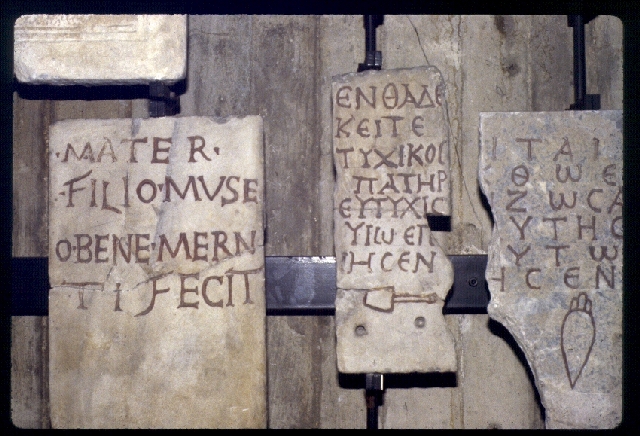 ·MATER·
·FILIO·MVSE
O·BENE·MERN
TI FECIT
ΕΝΘΑΔΕ
ΚΕΙΤΕ
ΤΥΧΙΚΟϹ
ΠΑΤΗΡ
ΕΥΤΥΧΙϹ
ΥΙΩ ΕΠ
ΙΗϹΕΝ
ΙΤΑΙ
ΘΩΕ
ΖΩϹΑ
ΥΤΗϹ
ΥΤΩ
ΗϹΕΝ